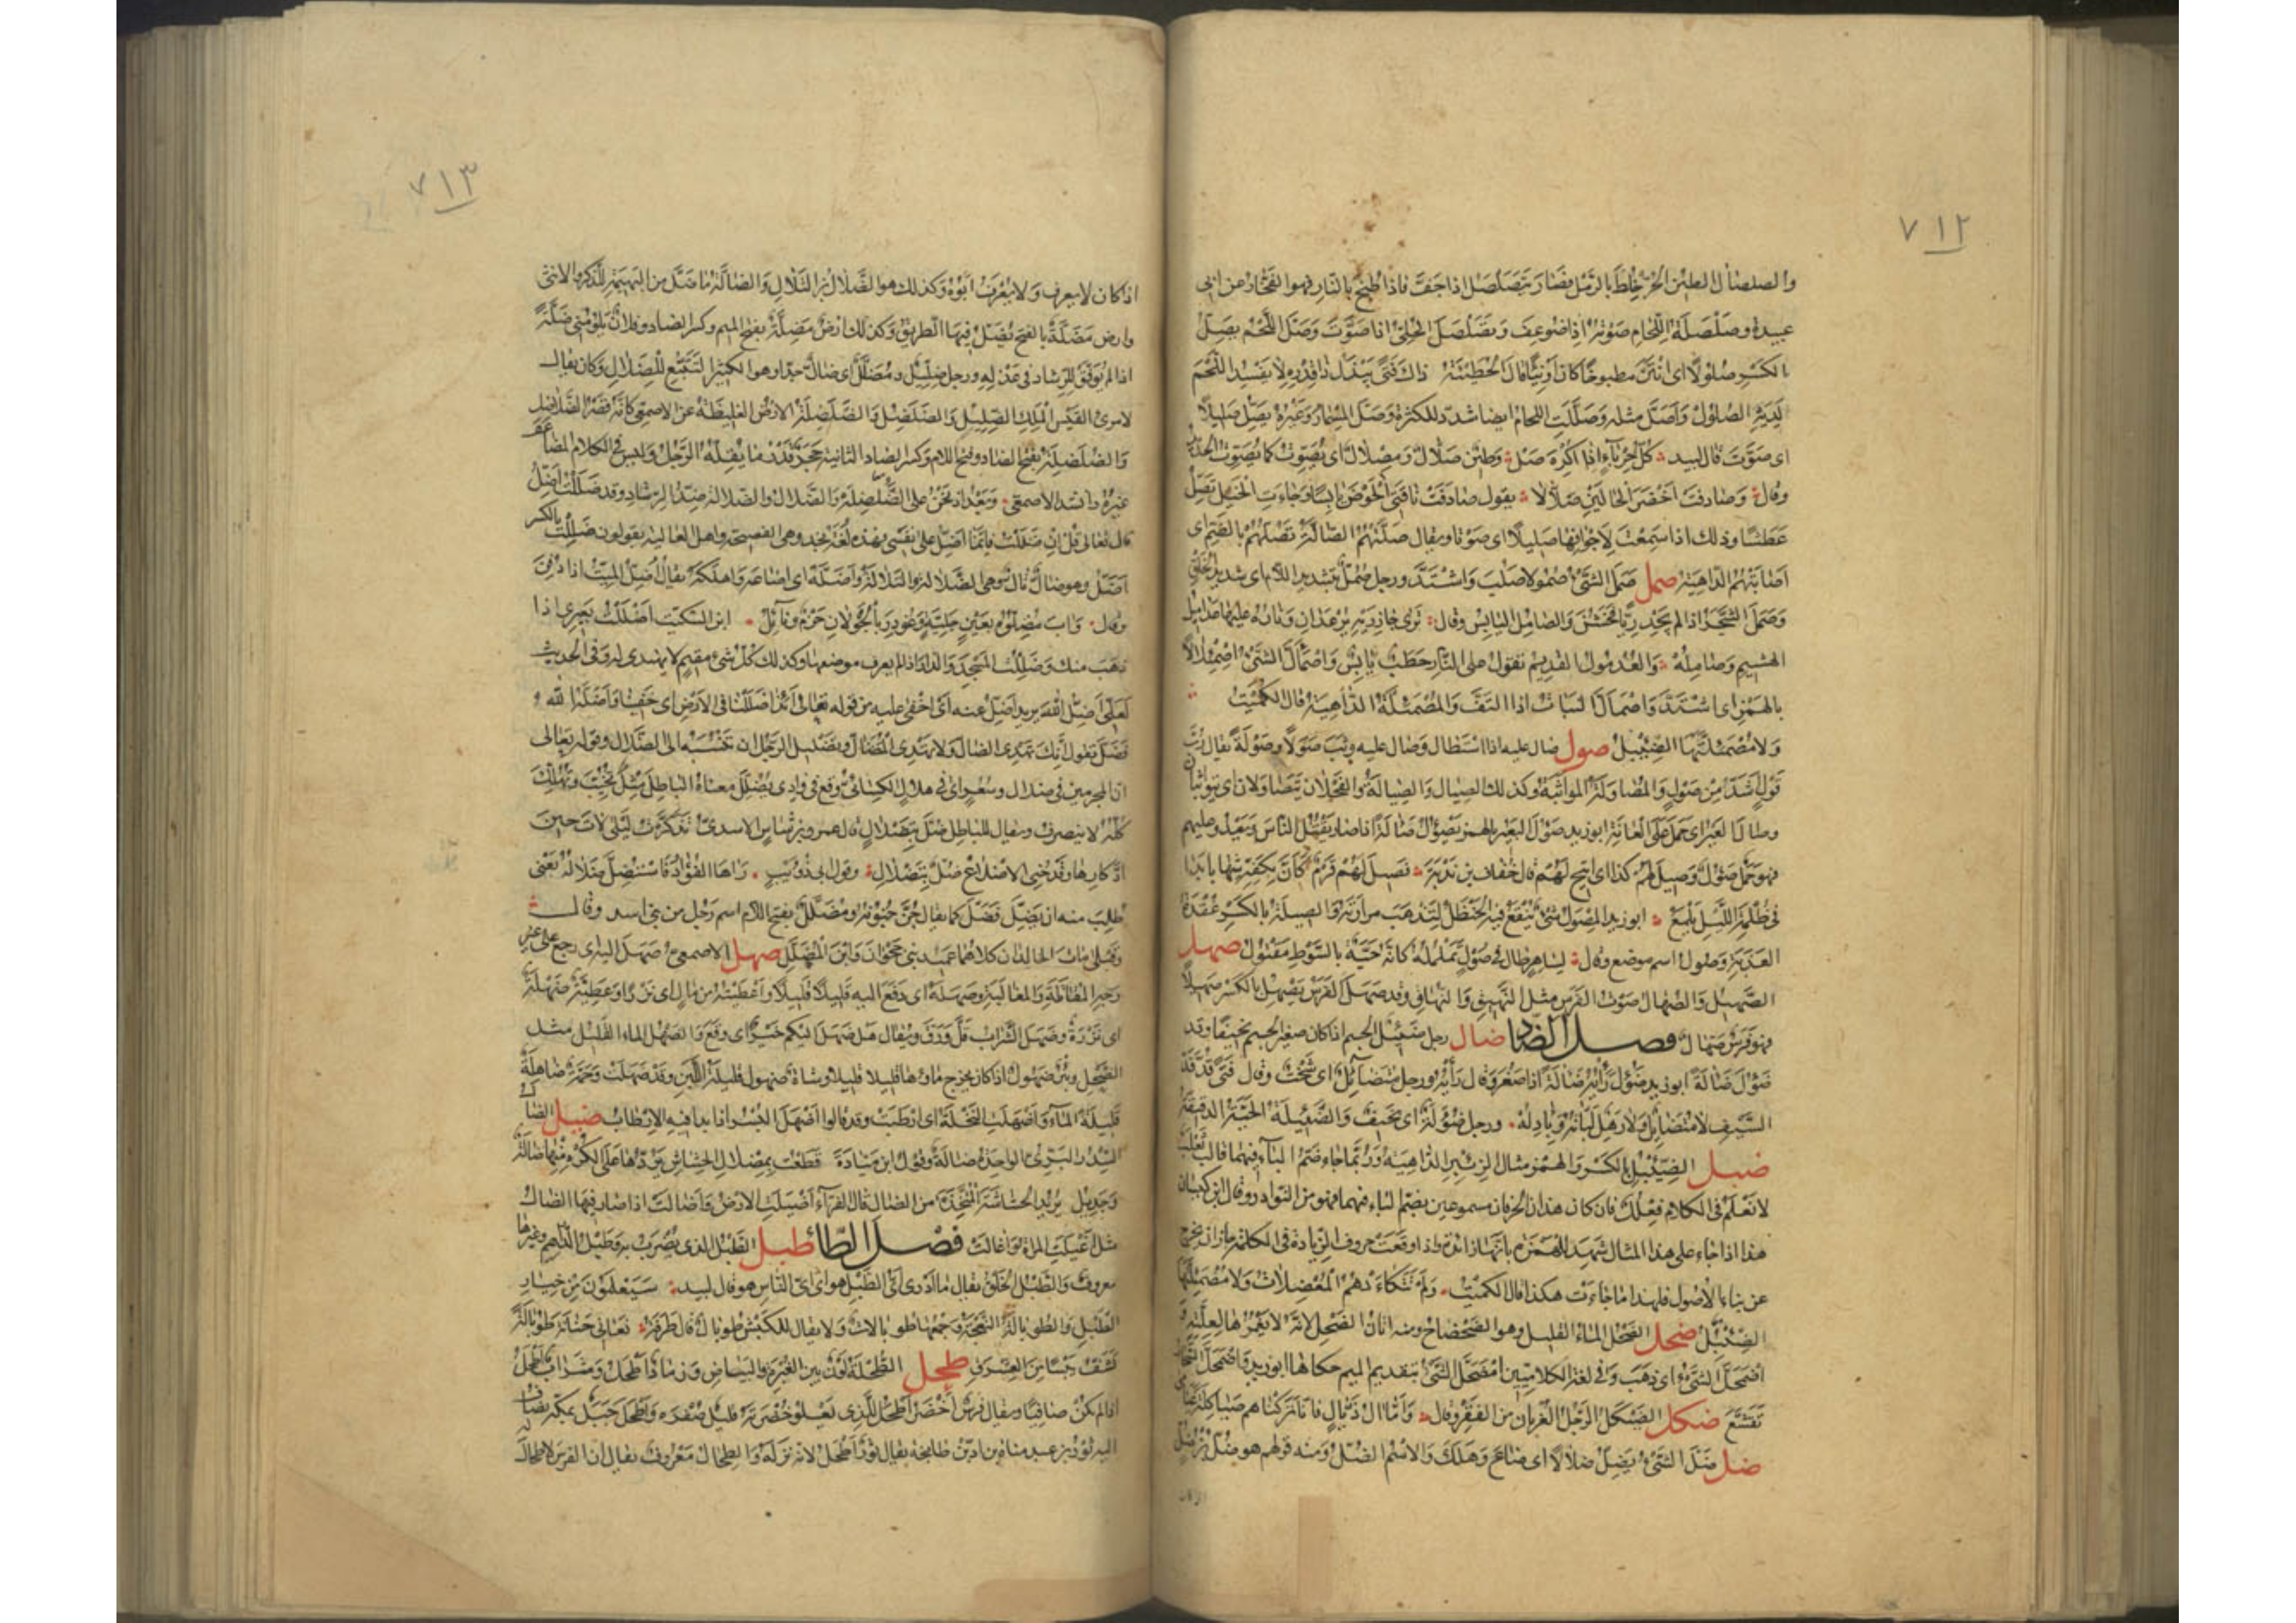 ٧١٢
والصلصال الطين الحر خلط بالرمل فصار يتصلصل اذا جف فاذا طبخ بالنار فهو الفخار عن ابى
عبيدة وصلصلة اللجام صوته اذا ضوعف وتصلصل الحلى اذا صوّت وصلّ اللحم يصلّ
بالكسر صلولا اى انتن مطبوخا كان او نيّا قال الحطيئة ذاك فتى يبذل ذا قدره لا يفسد اللحم
لديه الصلول واصلّ مثله وصلّلت اللجام ايضا شدد للكثرة وصلّ المسمار وغيره يصلّ صليلا
اى صوّت قال لبيد كل حرباء اذا اكره صلّ وطين صلّال ومصلال اى يصوّت كما يصوّت
وقال وصادفت اخضر الجالين صلّالا يقول صادفت ناقتى الحوض يابسا وجاءت الخيل تصلّ
عطشا وذلك اذا سمعت لاجوافها صليلا اى صوتا ويقال صلّتهم الصالّة تصلّهم بالضم اى
اصابتهم الداهية صمل صمل الشئ صمولا صلب واشتدّ ورجل صملّ بتشديد اللام اى شديد الخلق
وصمل الشجر اذا لم يجد ريّا فخشن والصامل اليابس وقال ترى جازريه يرعدان وناره عليها عداميل
الهشيم وصامله والعدمول القديم تقول على النار حطب يابس واصمألّ الشئ اصمئلالا
بالهمز اى اشتدّ واصمألّ النبات اذا التفّ والمصمئلّة الداهية قال الكميت
ولا مصمئلّتها الضئبل صول صال عليه اذا استطال وصال عليه وثب صولا وصولة يقال ربّ
قول اشدّ من صول والمصاولة المواثبة وكذلك الصيال والصيالة والفحلان يتصاولان اى يتواثبان
وصال العير اى حمل على العانة ابو زيد صؤل البعير بالهمز يصؤل صآلة اذا صار يقتل الناس ويعدو عليهم
فهو جمل صؤل وصيل لهم كذا اى اتيح لهم قال خفاف بن ندبة فصيل لهم قرم كأنّ بكفّه شهابا بدا
فى ظلمة الليل يلمع ابو زيد المصول شئ ينقع فيه الحنظل لتذهب مرارته والصيلة بالكسر عقدة
العذبة وصول اسم موضع وقال لساهر طال فى صول تململه كانه حيّة بالسوط مقتول صهل
الصهيل والصهال صوت الفرس مثل النهيق والنهاق وقد صهل الفرس يصهل بالكسر صهيلا
فهو فرس صهّال فصل الضاد ضال رجل ضئيل الجسم اذا كان صغير الجسم نحيفا وقد
ضؤل ضآلة ابو زيد ضؤل رأيه ضآلة اذا صغر وفال رأيه ورجل متضائل اى شخت وقال فتى قدّ قدّ
السيف لا متضائل ولا رهل لبّاته وبآدله ورجل ضؤلة اى نحيف والضئيلة الحيّة الدقيقة
ضبل الضئبل بالكسر والهمز مثال الزئبر الداهية وربما جاء ضمّ الباء فيهما قال ثعلب
لا نعلم فى الكلام فعلل فان كان هذان الحرفان مسموعين بضم الباء فيهما فهو من النوادر وقال ابن كيسان
هذا اذا جاء على هذا المثال شهد للهمزة بانها زائدة واذا وقعت حروف الزيادة فى الكلمة جاز ان تخرج
عن بناء الاصول فلهذا ما جاءت هكذا قال الكميت ولم تتكاءدهم المعضلات ولا مصمئلّتها
الضئبل ضحل الضحل الماء القليل وهو الضحضاح ومنه اتان الضحل لانه لا يغمرها لقلّته و
اضمحلّ الشئ اى ذهب وفى لغة الكلابيّين امضحلّ الشئ بتقديم الميم حكاها ابو زيد واضمحلّ السحاب
تقشّع ضكل الضيكل الرجل العريان من الفقر وقال وامّا آل ذيّال فانا تركناهم ضياكلة
ضلل ضلّ الشئ يضلّ ضلالا اى ضاع وهلك والاسم الضلّ ومنه قولهم هو ضلّ بن ضلّ
٧١٣
اذا كان لا يعرف ولا يعرف ابوه وكذلك هو الضلال بن التلال والضالّة ما ضلّ من البهيمة للذكر والانثى
وارض مضلّة بالفتح تضلّ فيها الطريق وكذلك ارض مضلّة بفتح الميم وكسر الضاد وفلان يلومنى ضلّة
اذا لم يوفّق للرشاد فى عذله ورجل ضلّيل ومضلّل اى ضالّ جدا وهو الكثير التتبّع للضلال وكان يقال
لامرئ القيس الملك الضلّيل والضلضل والضلضلة الارض الغليظة عن الاصمعى كانه قصر الضلاضل
والضلضلة بفتح الضاد وفتح اللام وكسر الضاد الثانية حجر قدر ما يقلّه الرجل وليس فى الكلام المضاعف
غيره وانشد الاصمعى وبعد اذ نحن على الضلضلة والضلال والضلالة ضدّ الرشاد وقد ضللت اضلّ
قال تعالى قل ان ضللت فانما اضلّ على نفسى فهذه لغة نجد وهى الفصيحة واهل العالية يقولون ضللت بالكسر
اضلّ وهو ضالّ تالّ وهى الضلالة والتلالة واضلّه اى اضاعه واهلكه يقال اضلّ الميّت اذا دفن
وقال وآب مضلّوه بعين جليّة وغودر بالجولان حزم ونائل ابن السكيت اضللت بعيرى اذا
ذهب منك وضللت المسجد والدار اذا لم يعرف موضعهما وكذلك كل شئ مقيم لا يهتدى له وفى الحديث
لعلّى اضلّ الله يريد اضلّ عنه اى اخفى عليه من قوله تعالى أئذا ضللنا فى الارض اى خفينا واضلّه الله
فضلّ تقول انك تهدى الضالّ ولا تهدى المتضالّ وتضليل الرجل ان تنسبه الى الضلال وقوله تعالى
ان المجرمين فى ضلال وسعر اى فى هلاك الكسائى وقع فى وادى تضلّل معناه الباطل مثل تخيّب وتهلّك
كله لا ينصرف ويقال للباطل ضلّ بتضلال قال عمرو بن شاس الاسدى تذكّرت ليلى لات حين
ادّكارها وقد حنى الاضلاع ضلّ بتضلال وقول ابى ذؤيب رآها الفؤاد فاستضلّ ضلاله يعنى
طلب منه ان يضلّ فضلّ كما يقال جنّ جنونه ومضلّل بفتح اللام اسم رجل من بنى اسد وقال
وقبلى مات الخالدان كلاهما عميد بنى جحوان وابن المضلّل ضهل الاصمعى ضهل اليه اى رجع على غير
وجه المقاتلة والمغالبة وضهله اى دفع اليه قليلا قليلا واعطيته من مال اى نزرا وعطيّة ضهلة
اى نزرة وضهل الشراب قلّ ورقّ ويقال هل ضهل اليكم خبر اى وقع والضهل الماء القليل مثل
الضحل وبئر ضهول اذا كان يخرج ماؤها قليلا قليلا وشاة ضهول قليلة اللبن وقد ضهلت وجمّة ضاهلة
قليلة الماء واضهلت النخلة اى ارطبت وقد قالوا اضهل البسر اذا بدا فيه الارطاب ضيل الضال
السدر البرّى الواحدة ضالة وقول ابن ميّادة قطعت بمصلال الخشاش يردّها على الكره منها ضالة
وجديل يريد الخشاشة المتّخذة من الضال قال الفراء اضيلت الارض واضالت اذا صار فيها الضال
مثل اغيلت المراة واغالت فصل الطاء طبل الطبل الذى يضرب به وطبل الدراهم وغيرها
معروف والطبل الخلق يقال ما ادرى اىّ الطبل هو اى اىّ الناس هو قال لبيد سيعلمون من خيار
الطبل والطوبالة النعجة وجمعها طوبالات ولا يقال للكبش طوبال قال طرفة نعانى حنانة طوبالة
تسفّ يبيسا من العشرق طحل الطحلة لون بين الغبرة والبياض ورماد اطحل وشراب اطحل
اذا لم يكن صافيا ويقال فرس اخضر اطحل للذى يعلو خضرته قليل صفرة واطحل جبل بمكة يضاف
اليه ثور بن عبد مناة بن ادّ بن طابخة يقال ثور اطحل لانه نزله والطحال معروف يقال ان الفرس لا طحال